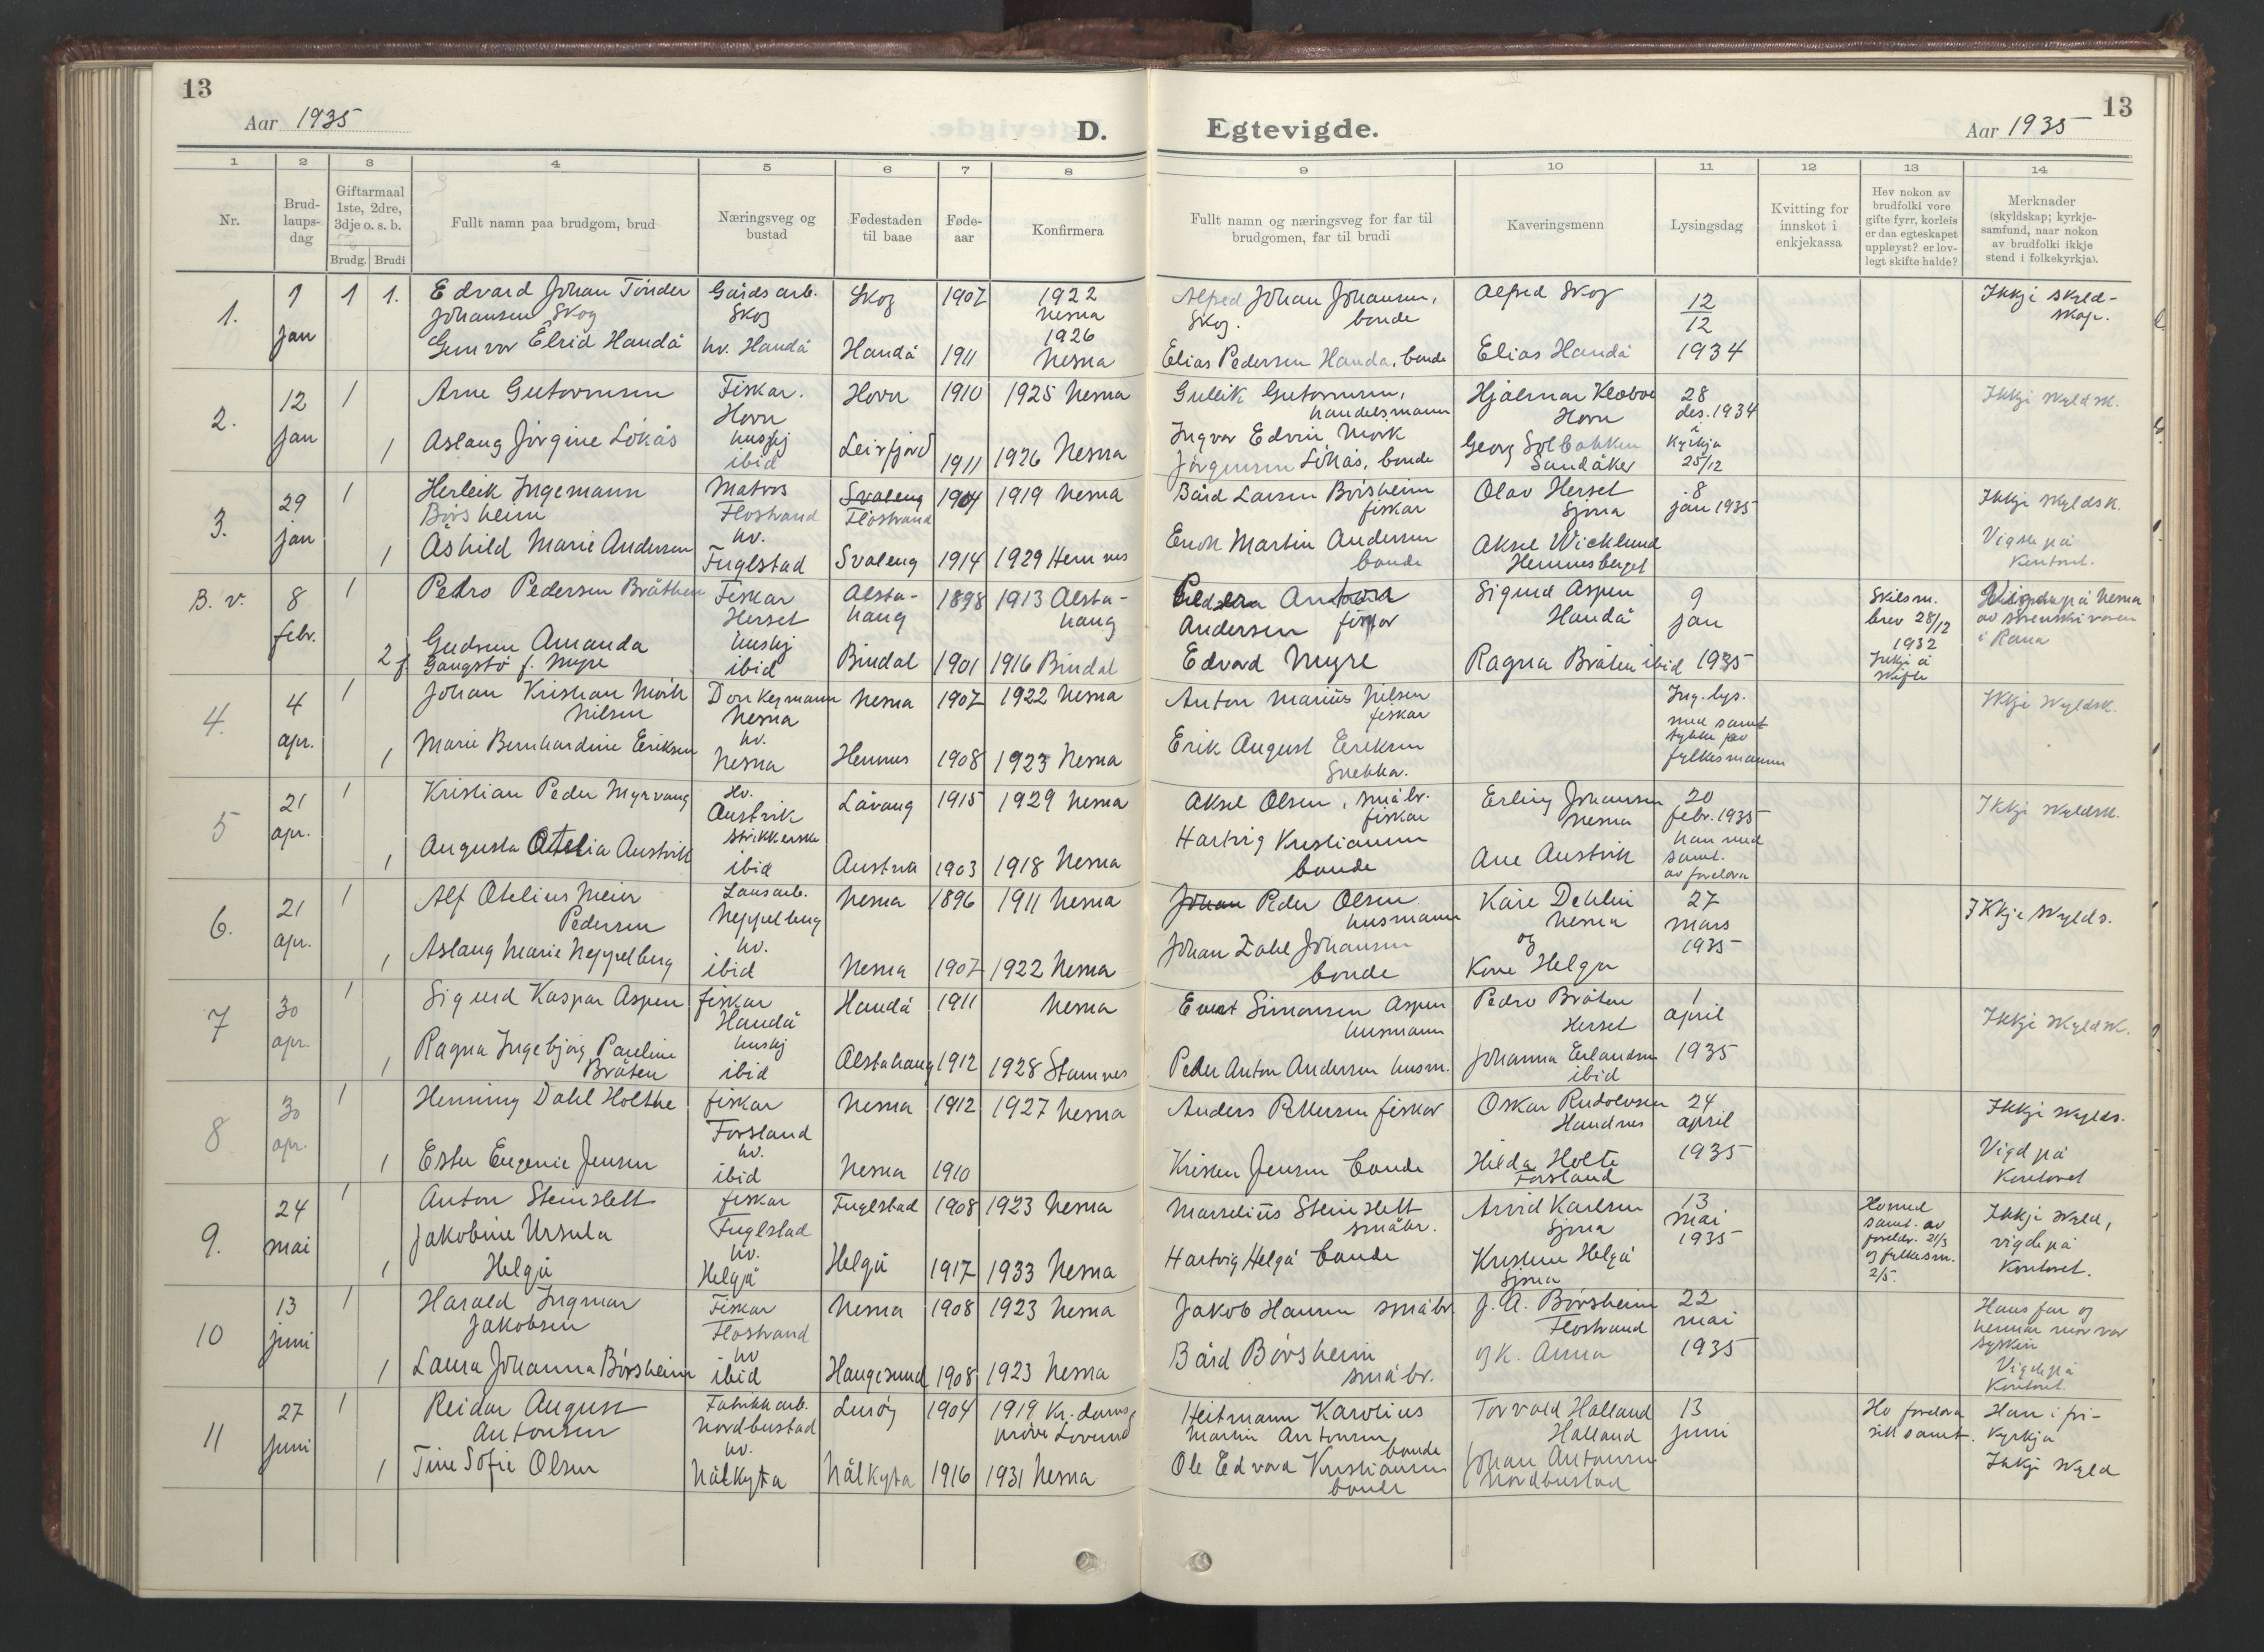 13
Aar 1935
D.
Egtevigde.
Aar 1935
13
1 2 3 4 5 6 7 8 9 10 11 12 13 14
Nr.
Brud-
laups-
dag
Giftarmaal
1ste, 2dre,
3dje o. s. b.
Brudg. Brudi
Fullt namn paa brudgom, brud
Næringsveg og
bustad
Fødestaden
til baae
Føde-
aar
Konfirmera
Fullt namn og næringsveg for far til
brudgomen, far til brudi
Kaveringsmenn
Lysingsdag
Kvitting for
innskot i
enkjekassa
Hev nokon av
brudfolki vore
gifte fyrr, korleis
er daa egteskapet
uppløyst? er lov-
legt skifte halde?
Merknader
(skyldskap; kyrkje-
samfund, naar nokon
av brudfolki ikkje
stend i folkekyrkja).
1.
1
jan
1 1.
Edvard Johan Tönder
Johansen Skog
Gunvor Elrid Handå
Gårdsarb.
Skog
hv. Handå
Skog
Handå
1907
1911
1922
Nesna
1926
Nesna
Alfred Johan Johansen,
Skog. bonde
Elias Pedersen Handa, bonde
Alfred Skog
Elias Handå
12
12
1934
Ikkji skyld-
skap.
2.
12
jan
1
1
Arne Gutormsen
Aslaug Jörgine Lökås
Fiskar.
Hovn
huskj
ibid
Hovn
Leirfjord
1910
1911
1925 Nesna
1926 Nesna
Guleik Gutormsen,
handelsmann
Ingvar Edvin Mork
Jörgensen Lökås, bonde
Hjalmar Klæboe
Hovn
Georg Solbakken
Sandåker
28
des. 1934
i
kyrkja
25/12
Ikkji skyldsk.
3.
29
jan
1
1
Herleik Ingemann
Börsheim
Åshild Marie Andersen
Matros
Flostrand
hv.
Fuglstad
Svaleng
Flostrand
Svaleng
1904
1914
1919 Nesna
1929 Hemnes
Bård Larsen Börsheim
fiskar
Enok Martin Andersen
bonde
Olav Herset
Sjona
Aksel Wicklund
Hemnesberget
8
jan 1935
Ikkji skyldsk.
Vigde på
Kontoret.
B. v.
8
febr.
1
2
Pedro Pedersen Bråthen
Gudrun Amanda
Gangstö f. Myre
Fiskar
Herset
huskj
ibid
Alsta-
haug
Bindal
1898
1901
1913 Alsta-
haug
1916 Bindal
Andersen fiskar
Edvard Myre
Sigurd Aspen
Handå
Ragna Bråten ibid
9
jan
1935
Skilsm.
brev 28/12
1932
Ikkji å
skifte
på Nesna
av
i Rana
4.
4
apr.
1
1
Johan Kristian Mörk
Nilsen
Marie Bernhardine Eriksen
Donkeymann
Nesna
hv.
Nesna
Nesna
Hemnes
1907
1908
1922 Nesna
1923 Nesna
Anton Marius Nilsen
fiskar
Erik August Eriksen
Snekka.
Ing. lys.
med samt
tykke av
fylkesmannen
Ikkji skyldsk.
5
21
apr.
1
1
Kristian Peder Myrvang
Augusta Otelia Austvik
Hv.
Austvik
strikkerske
ibid
Låvang
Austvik
1915
1903
1929 Nesna
1918 Nesna
Aksel Olsen, småbr.
fiskar
Hartvig Kristiansen
bonde
Erling Johansen
Nesna
Ane Austvik
20
febr. 1935
han med
samt.
av foreldra
Ikkji skyldsk.
6.
21
apr.
1
1
Alf Otelius Meier
Pedersen
Aslaug Marie Neppelberg
Lausarb.
Neppelberg
hv.
ibid
Nesna
Nesna
1896
1907
1911 Nesna
1922 Nesna
Johan Peder Olsen
husmann
Johan Zahl Johansen
bonde
Kåre Dehlin
Nesna
og
Kone Helga
27
mars
1935
Ikkje skylds.
7
30
apr.
1
1
Sigurd Kaspar Aspen
Ragna Ingebjörg Pauline
Bråten
fiskar
Handå
huskj
ibid
Handå
Alstahaug
1911
1912
Nesna
1928 Stamnes
Evert Simonsen Aspen
husmann
Peder Anton Andersen husm.
Pedro Bråten
Herset
Johanna Erlandsen
ibid
1
april
1935
Ikkji skyldsk.
8
30
apr.
1
1
Henning Dahl Holthe
Ester Eugenie Jensen
fiskar
Forsland
hv.
ibid
Nesna
Nesna
1912
1910
1927 Nesna
Anders Pettersen fiskar
Kristen Jensen bonde
Oskar Rudolvsen
Handnes
Hilda Holte
Forsland
24
april
1935
Ikkji skylds.
Vigd på
Kontoret
9.
24
mai
1
1
Anton Steinslett
Jakobine Ursula
Helgå
fiskar
Fuglstad
hv.
Helgå
Fuglstad
Helgå
1908
1917
1923 Nesna
1933 Nesna
Marselius Steinslett
småbr.
Hartvig Helgå bonde
Arvid Karlsen
Sjona
Kristine Helgå
Sjona
13
mai
1935
Ho med
samt. av
foreldr. 21/3
og fylkesm.
2/5.
Ikkji skyld,
vigde på
Kontoret.
10
13
juni
1
1
Harald Ingmar
Jakobsen
Laura Johanna Börsheim
Fiskar
Flostrand
hv
ibid
Nesna
Haugesund
1908
1908
1923 Nesna
1923 Nesna
Jakob Hansen småbr.
Bård Börsheim
småbr.
J. A. Börsheim
Flostrand
og K. Anna
22
mai
1935
Hans far og
hennar mor var
syskin
Vigde på
Kontoret.
11
27
juni
1
1
Reidar August
Antonsen
Tine Sofie Olsen
Fabrikkarb.
Nordbustad
hv.
Nålkyta
Luröy
Nålkyta
1904
1916
1919 Kr.
Lovund
1931 Nesna
Heitmann Karolius
Martin Antonsen,
bonde
Ole Edvard Kristiansen
bonde
Torvald Halland
Halland
Johan Antonsen
Nordbustad
13
juni
Ho foreldra
sitt samt.
Han i fri-
kyrkja
Ikkji skyld